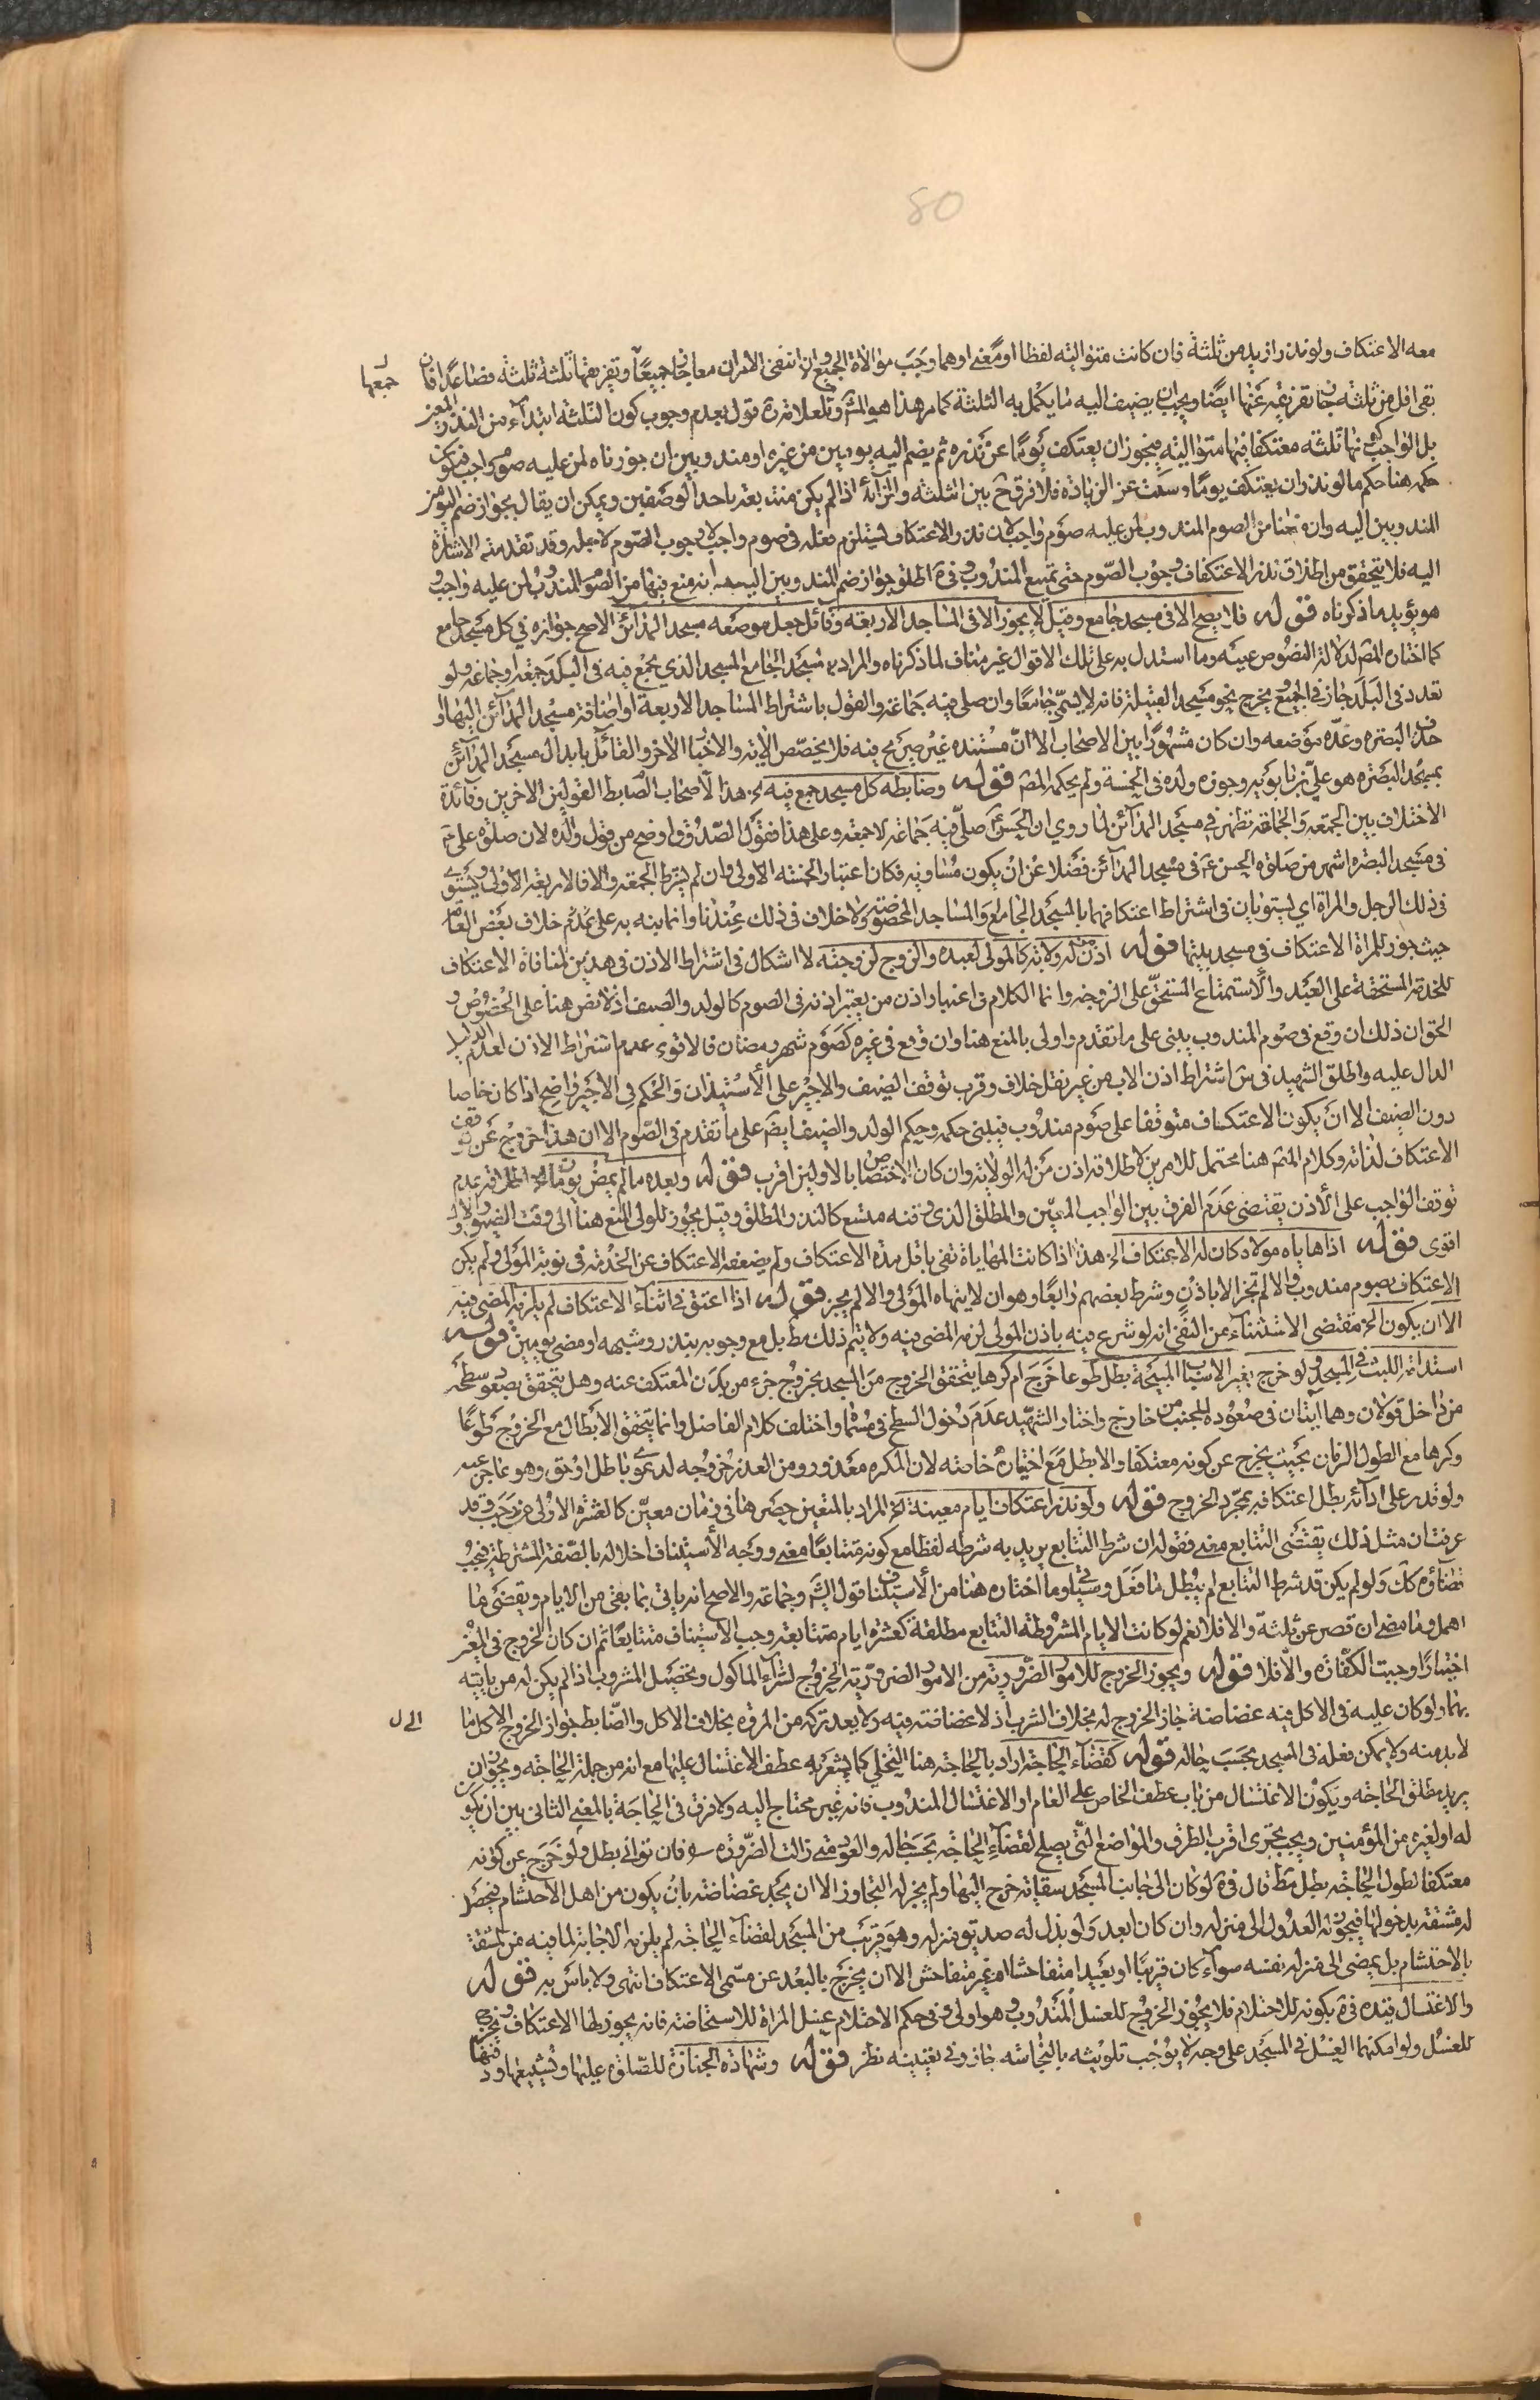 80
معه الاعتكاف ولو نذر ازيد من ثلثة فان كانت متوالية لفظا او معنى او هما وجب موالاة الجميع وان انتفى الامران معا جاز جمعها جميعًا وتفريقها ثلثة ثلثة فصاعدًا فان
بقى اقل من ثلثة جاز تفريقه عنها ايضًا ويجب ان يضيف اليه ما يكمل به الثلثة كما مر هذا هو المشهور وللعلامة ره قول بعدم وجوب كون الثلثة ابتداء من النذر
بل الواجب كونها ثلثة معتكفا فيها متوالية فيجوز ان يعتكف يومًا عن نذره ثم يضم اليه يومين من غيره او مندوبين ان جوزناه لمن عليه صوم واجب فيكون
حكمه هنا حكم ما لو نذر ان يعتكف يوما وسكت عن الزيادة فلا فرق ح بين الثلثة والزائد اذا لم يكن متتابعة باحد الوصفين ويمكن ان يقال بجواز ضم اليومين
المندوبين اليه وان منعنا من الصوم المندوب لمن عليه صوم واجب لان نذر الاعتكاف لا يستلزم فعله في صوم واجب لا وجوب الصوم لاجله وقد تقدمت الاشارة
اليه فلا يتحقق من اطلاق نذر الاعتكاف وجوب الصوم حتى تمنع المندوب وفي ة اطلق جواز ضم المندوبين اليه مع انه منع فيها من الصوم المندوب لمن عليه واجب و
هو يؤيد ما ذكرناه قوله فلا يصح الا في مسجد جامع وقيل لا يجوز الا في المساجد الاربعة وقائل جعل موضعه مسجد المدائن الاصح جوازه في كل مسجد جامع
كما اختاره المص لدلالة النصوص عليه وما استدل به على تلك الاقوال غير مناف لما ذكرناه والمراد بالمسجد الجامع المسجد الذي يجمع فيه في البلد جمعة او جماعة ولو
تعدد في البلد جاز في الجميع يخرج نحو مسجد القبيلة فانه لا يسمى جامعًا وان صلى فيه جماعة والقول باشتراط المساجد الاربعة او اضافة مسجد المدائن اليها او
حذف البصرة وعده موضعه وان كان مشهورًا بين الاصحاب الا ان مستنده غير صريح فيه فلا يخصص الاية والاخبار الاخر والقائل بابدال مسجد المدائن
بمسجد البصرة هو علي بن بابويه وجوزه ولده في الخمسة ولم يحكه المص قوله وضابطه كل مسجد جمع فيه الخ هذا لاصحاب الضابط القولين الاخرين وفائدة
الاختلاف بين الجمعة والجماعة تظهر في مسجد المدائن لما روي ان الحسن ع صلى فيه جماعة لا جمعة وعلى هذا فقول الصدوق اوضح من قول والده لان صلوة علي ع
في مسجد البصرة اشهر من صلوة الحسن ع في مسجد المدائن فضلا عن ان يكون مساويه فكان اعتبار الخمسة الاولى وان لم يشترط الجمعة والا فالاربعة الاولى ويستوي
في ذلك الرجل والمراة اي يستويان في اشتراط اعتكافهما بالمسجد الجامع والمساجد المخصوصة ولا خلاف في ذلك عندنا وانما نبه به على ثم خلاف بعض العامة
حيث جوز للمراة الاعتكاف في مسجد بيتها قوله اذن من له ولاية كالمولى لعبده والزوج لزوجته لا اشكال في اشتراط الاذن في هذين لمنافاة الاعتكاف
للخدمة المستحقة على العبد والاستمتاع المستحق على الزوجة وانما الكلام في اعتبار اذن من يعتبر اذنه في الصوم كالولد والضيف اذ لا نص هنا على الخصوص و
الحق ان ذلك ان وقع في صوم المندوب يبنى على ما تقدم واولى بالمنع هنا وان وقع في غيره كصوم شهر رمضان فالاقوى عدم اشتراط الاذن لعدم الدليل
الدال عليه واطلق الشهيد في س اشتراط اذن الاب من غير نقل خلاف وقرب توقف الضيف والاجير على الاستيذان والحكم في الاجير واضح اذا كان خاصا
دون الضيف الا ان يكون الاعتكاف متوقفا على صوم مندوب فيبنى حكمه وحكم الولد والضيف ايضا على ما تقدم في الصوم الا ان هذا خروج عن توقف
الاعتكاف لذاته وكلام المص هنا محتمل للامرين لاطلاقه اذن من له الولاية وان كان الاختصاص بالاولين اقرب قوله وبعده ما لم يمض يومان الخ اطلاقه عدم
توقف الواجب على الاذن يقتضي عدم الفرق بين الواجب المعين والمطلق الذي وقته متسع كالنذر المطلق وقيل يجوز للولي المنع هنا الى وقت الضيق والاول
اقوى قوله اذا هاياه مولاه كان له الاعتكاف الخ هذا اذا كانت المهاياة تفي باقل مدة الاعتكاف ولم يضعفه الاعتكاف عن الخدمة في نوبة المولى ولم يكن
الاعتكاف بصوم مندوب والا لم تجز الا باذن وشرط بعضهم رابعًا وهو ان لا ينهاه المولى والا لم يجز قوله اذا اعتق في اثناء الاعتكاف لم يلزمه المضي فيه
الا ان يكون الخ مقتضى الاستثناء من النفي انه لو شرع فيه باذن المولى لزمه المضي فيه ولا يتم ذلك مط بل مع وجوبه بنذر وشبهه او مضى يومين قوله
استدامة اللبث في المسجد ولو خرج لغير الاسباب المبيحة بطل طوعا خرج ام كرها يتحقق الخروج من المسجد بخروج جزء من بدن المعتكف عنه وهل يتحقق بصعود سطحه
من داخل قولان وهما ايتان في صعوده للجنب من خارج واختار الشهيد عدم دخول السطح في مسماه واختلف كلام الفاضل وانما يتحقق الابطال مع الخروج طوعًا
وكرها مع الطول الزمان بحيث يخرج عن كونه معتكفا والا بطل مع اختياره خاصة لان المكره معذور ومن العذر خروجه لدعوى باطل او حق وهو عاجز عنه
ولو قدر على ادائه بطل اعتكافه بمجرد الخروج قوله ولو نذر اعتكاف ايام معينة الخ المراد بالتعيين حصرها في زمان معين كالعشرة الاولى من رجب وقد
عرفت ان مثل ذلك يقتضي التتابع معنى فقوله ان شرط التتابع يريد به شرطه لفظا مع كونه متتابعًا معنى ووجه الاستيناف اخلاله بالصفة المشترطة فيجب
قضاؤه كك ولو لم يكن قد شرط التتابع لم يبطل ما فعل وسياتي وما اختاره هنا من الاستيناف قول الشيخ وجماعة والاصح انه ياتي بما بقي من الايام ويقضي ما
اهمل وما مضى ان قصر عن ثلثة والا فلا نعم لو كانت الايام المشروطة التتابع مطلقة كعشرة ايام متتابعة وجب الاستيناف متتابعًا ثم ان كان الخروج في المعين
اختيارًا وجبت الكفارة والا فلا قوله ويجوز الخروج للامور الضرورية من الامور الضرورية الخروج لشراء الماكول وتحصيل المشروب اذا لم يكن له من ياتيه
بهما ولو كان عليه في الاكل فيه غضاضة جاز الخروج له بخلاف الشرب اذ لا غضاضة فيه ولا يعد تركه من المروة بخلاف الاكل والضابط جواز الخروج الى كل ما
لابد منه ولا يمكن فعله في المسجد بحسب حاله قوله كقضاء الحاجة اراد بالحاجة هنا التخلي كما يشعر به عطف الاغتسال عليها مع انه من جملة الحاجة ويجوز ان
يريد مطلق الحاجة ويكون الاغتسال من باب عطف الخاص على العام او الاغتسال المندوب فانه غير محتاج اليه ولا فرق في الحاجة بالمعنى الثاني بين ان يكون
له او لغيره من المؤمنين ويجب تحري اقرب الطرق والمواضع التي يصلح لقضاء الحاجة بحسب حاله والعود متى زالت الضرورة فان توانى بطل ولو خرج عن كونه
معتكفا لطول الحاجة بطل مط قال في ة لو كان الى جانب المسجد سقاية خرج اليها ولم يجز له التجاوز الا ان يجد غضاضة بان يكون من اهل الاحتشام فيحصل
له مشقة بدخولها فيجوز له العدول الى منزله وان كان ابعد ولو بذل له صديق منزله وهو قريب من المسجد لقضاء الحاجة لم يلزمه الاجابة لما فيه من المشقة
بالاحتشام بل يمضي الى منزله نفسه سواء كان قريبًا او بعيدا متفاحشا او غير متفاحش الا ان يخرج بالبعد عن مسمى الاعتكاف انتهى ولا باس به قوله
والاغتسال قيده في ة بكونه للاحتلام فلا يجوز الخروج للغسل المندوب وهو اولى وفي حكم الاحتلام غسل المراة للاستحاضة فانه يجوز لها الاعتكاف وتخرج
للغسل ولو امكنهما الغسل في المسجد على وجه لا يوجب تلويثه بالنجاسة جاز وفي تعيينه نظر قوله وشهادة الجنازة للصلوة عليها وتشييعها ودفنها